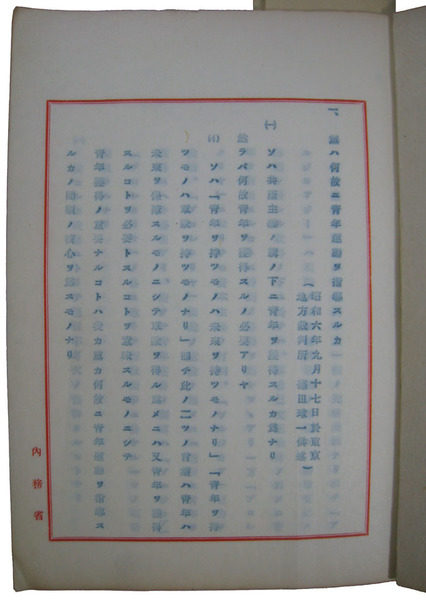 一、黨ハ何故ニ青年運動ヲ指導スルカ
(昭和六年九月十七日於東京
地方裁判所 徳田球一供述)
(一) ソハ共産主義ノ旗ノ下ニ青年ヲ獲得スルカ為ナリ
然ラバ何故青年ヲ獲得スルノ必要アリヤ
(イ) ソハ「青年ヲ持ツモノハ未来ヲ持ツモノナリ」「青年ヲ持
ツモノハ軍隊ヲ持ツモノナリ」即チ此ノ二ツノ言葉ハ青年ハ
未来ヲ スルモノニシテ軍隊ヲ得ル為メニハ又青年ヲ獲得
スルコトヲ必要トスルコトヲ意味スルモノニシテ
青年獲得ノ重要ナルコトハ我カ黨カ何故ニ青年運動ヲ指導ス
ルカノ問題ノ核心ヲ為スモノナリ
內務省